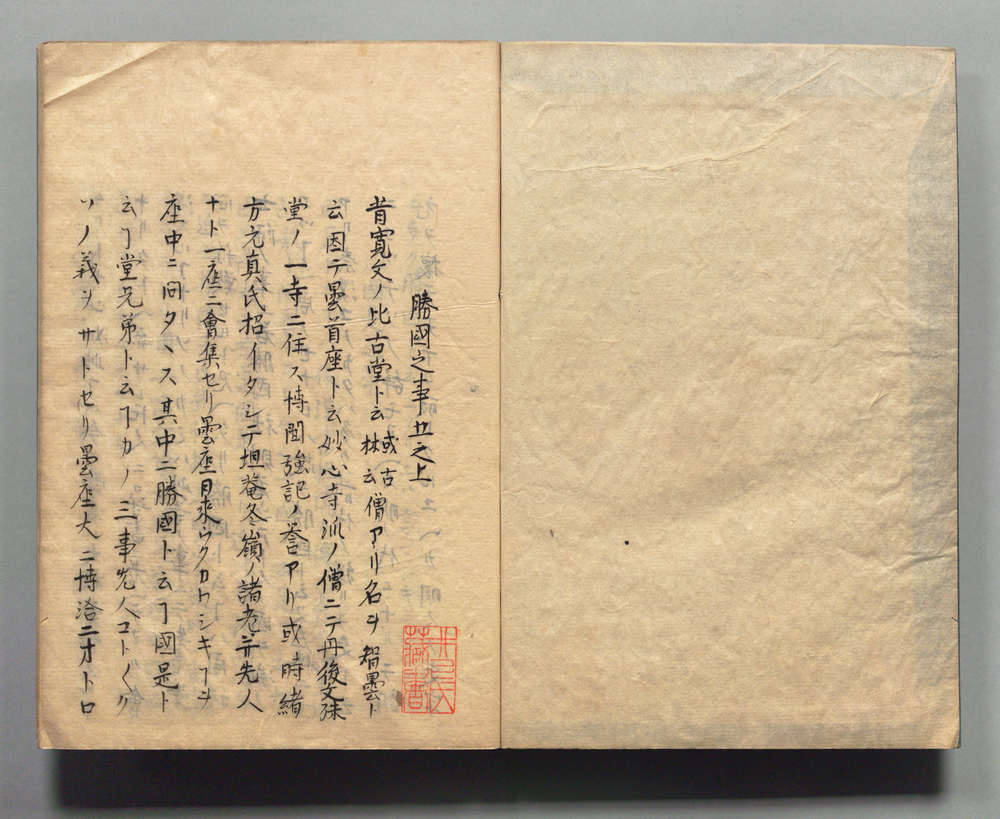 勝國之事 廿之上
昔寛文ノ比古堂ト云或古林云僧アリ名ヲ智曇ト
云因テ曇首座ト云妙心寺派ノ僧ニテ丹後文殊
堂ノ一寺ニ住ス博聞強記ノ誉アリ或時緒
方元真氏招イタシテ坦菴冬嶺ノ諸老并先人
ナト一座ニ會集セリ曇座日来ウタカハシキヿヲ
座中ニ問タヽス其中ニ勝國ト云ヿ國是ト
云ヿ堂兄弟ト云ヿカノ三事先人コト〱ク
ソノ義ヲサトセリ曇座大ニ博洽ニオトロ
藏書